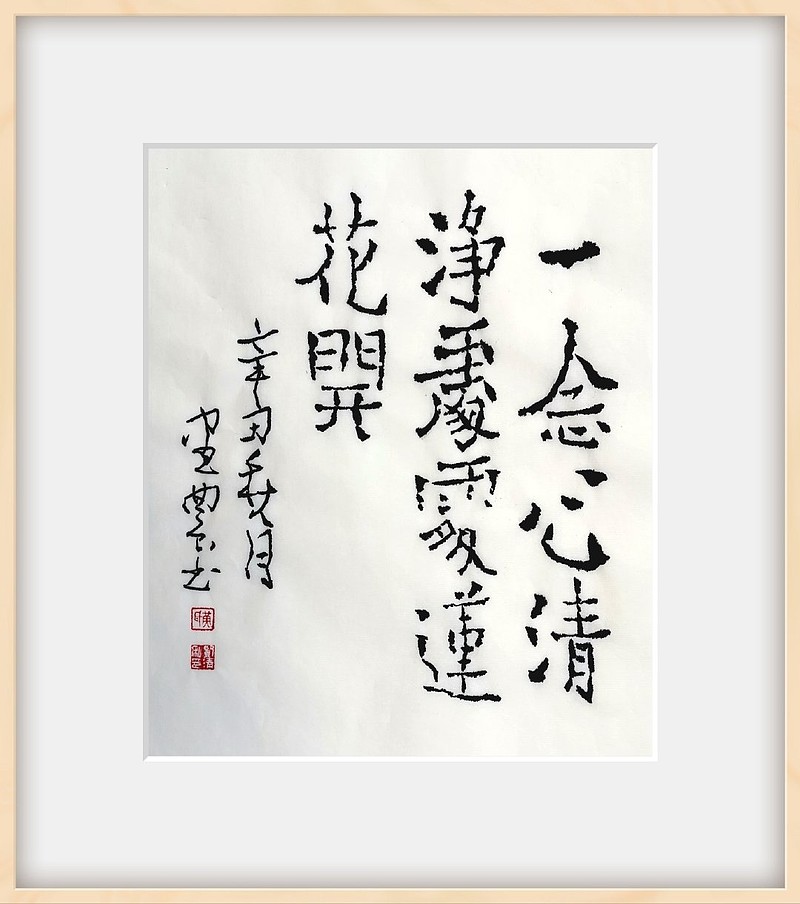 一念心清
淨處處蓮
花開
辛丑秋月
书